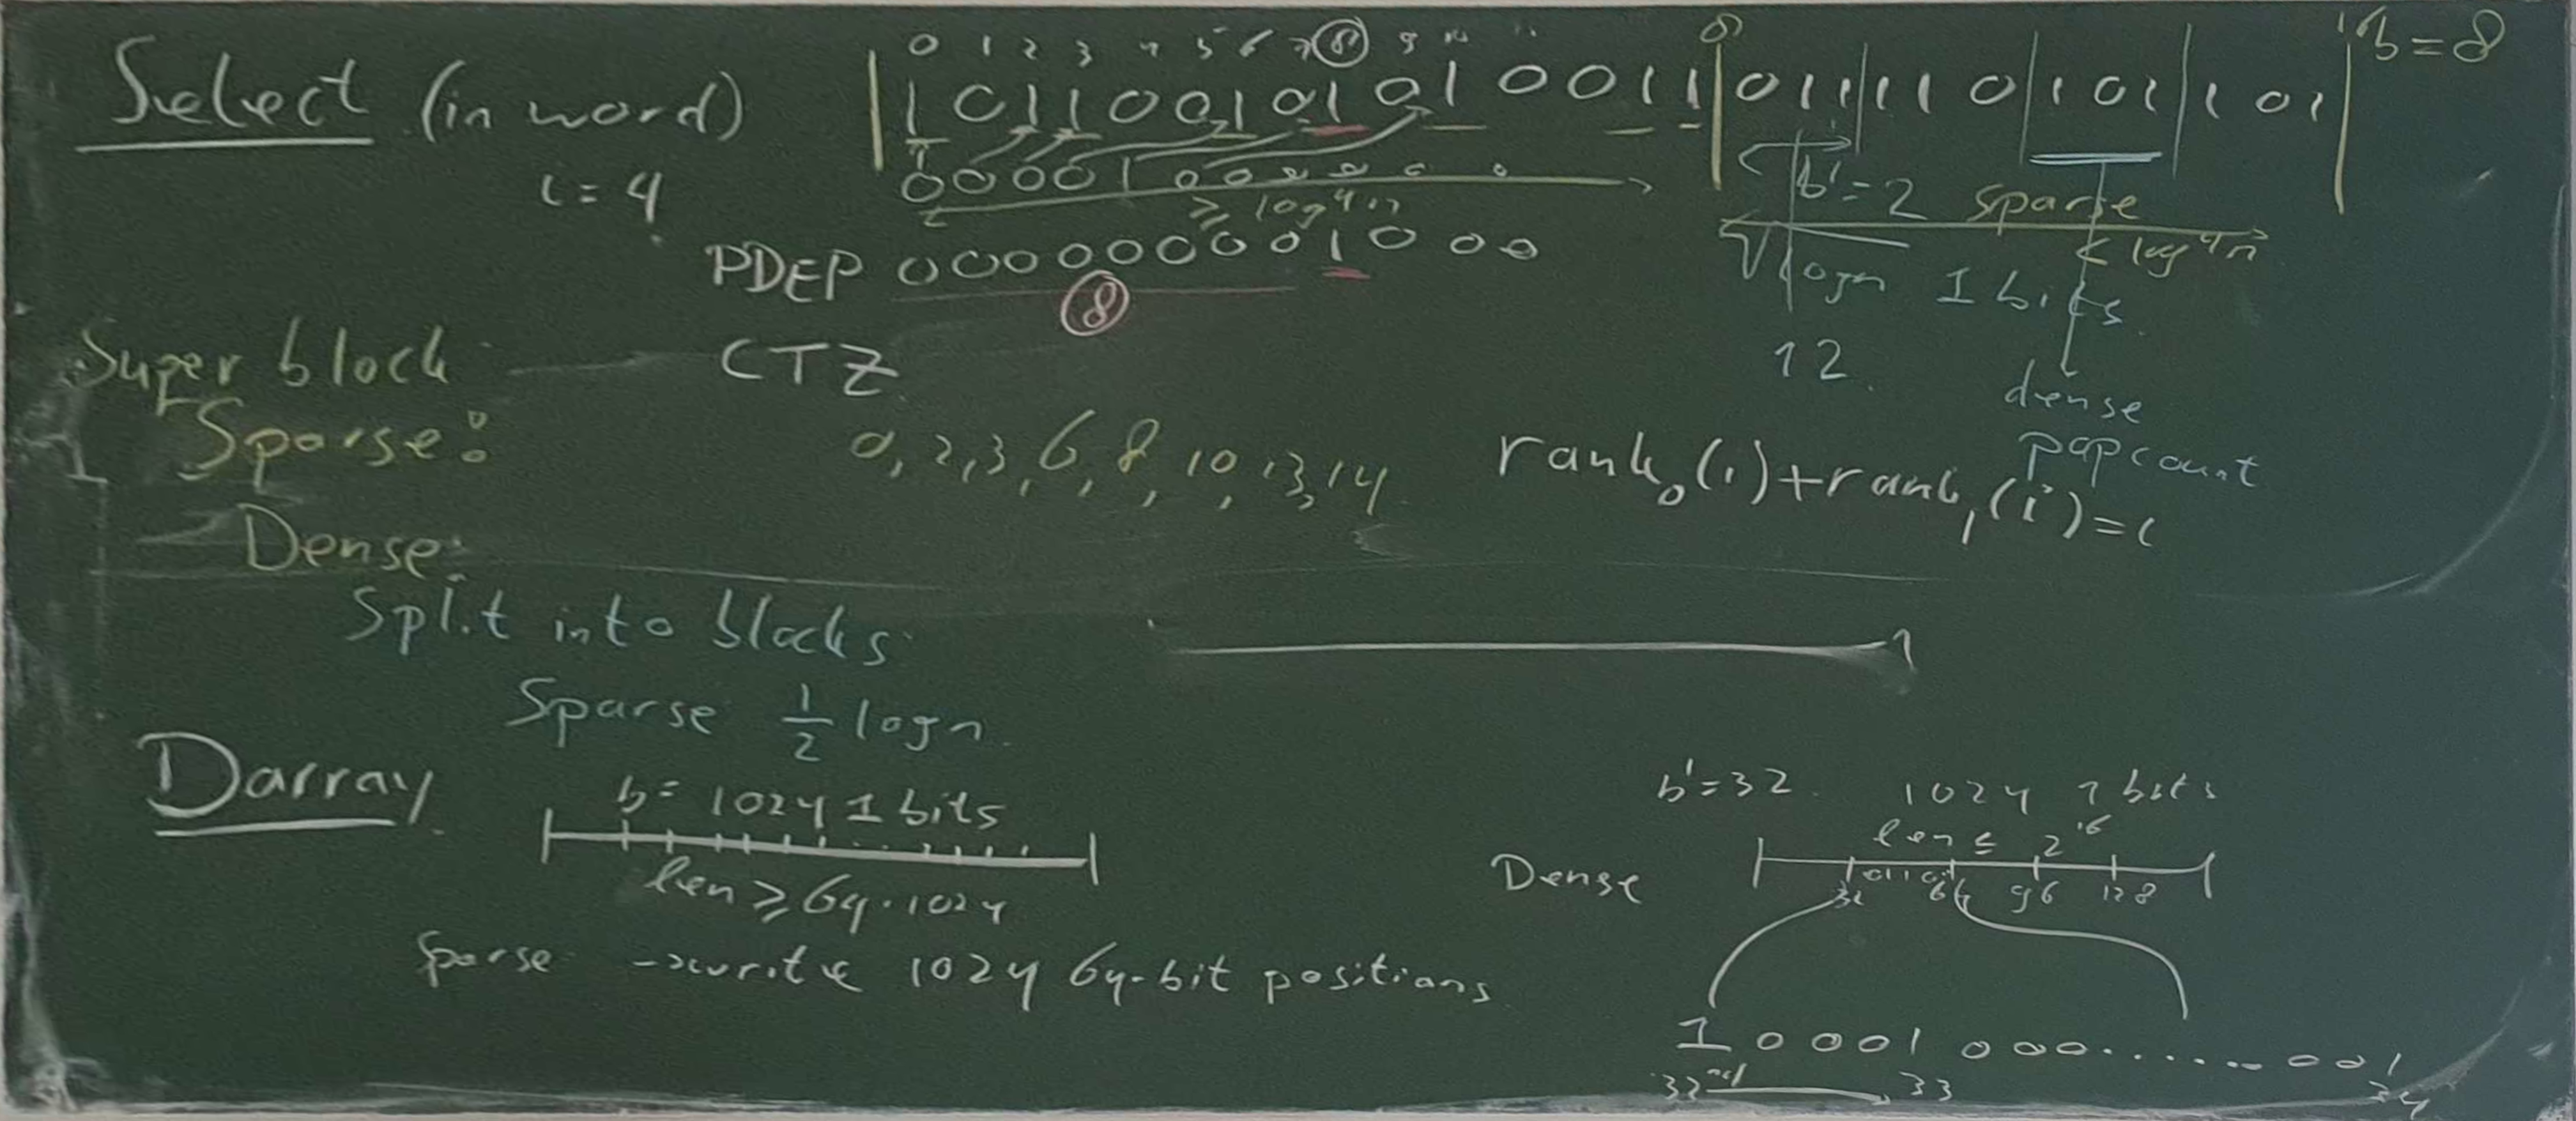 0 1 2 3 4 5 6 7 8 9 10 11
8
16
b=8
Select (in word)
1 0 1 1 0 0 1 0 1 0 1 0 0 1 1 0 1 1 1 1 0 1 0 1 1 0 1
i = 4
0 0 0 0 1 0 0 0 0 0 0
≥ log⁴n
b'=2 sparse
< log⁴n
PDEP 0 0 0 0 0 0 0 0 1 0 0 0
8
√logn 1 bits
12
dense
popcount
Super block
CTZ
Sparse:
0, 2, 3, 6, 8, 10, 13, 14
rank₀(i)+rank₁(i)=i
Dense:
Split into blocks
Sparse ½ logn
Darray
b= 1024 1 bits
len ≥ 64·1024
Sparse → write 1024 64-bit positions
b'=32
1024 1 bits
len ≤ 2¹⁶
Dense
32 64 96 128
1 0 0 0 1 0 0 0 ....... 0 0 1
32nd 33 34